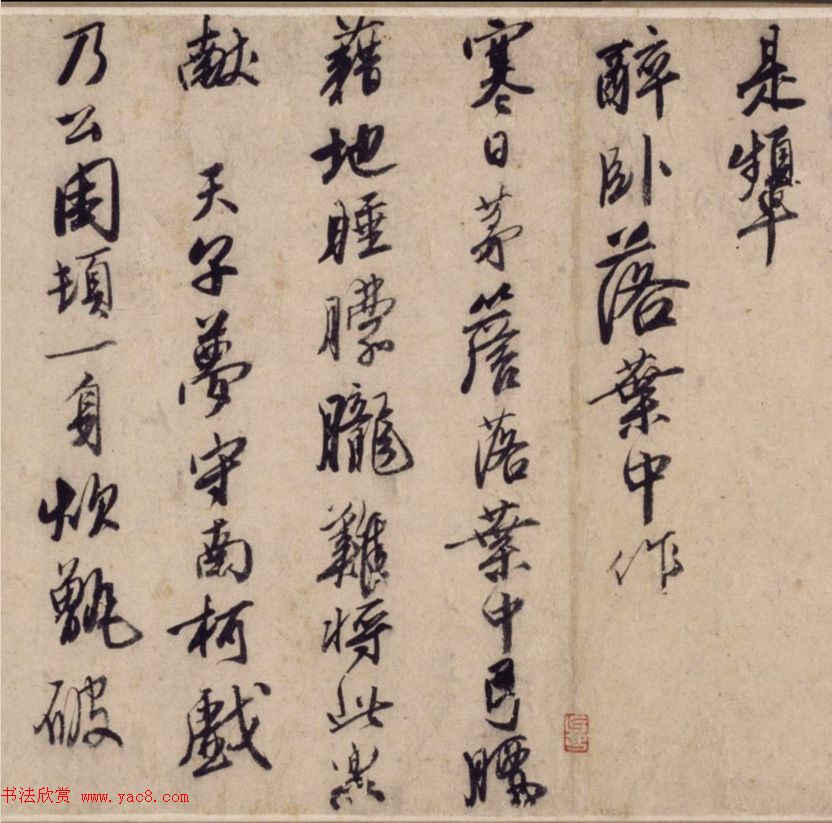 是顰
醉卧落葉中作
寒日茅簷落葉中腰
藉地睡朦朧難將此樂
獻 天子夢守南柯戲
乃公困頓一身炊甑破
书法欣赏 www.yac8.com